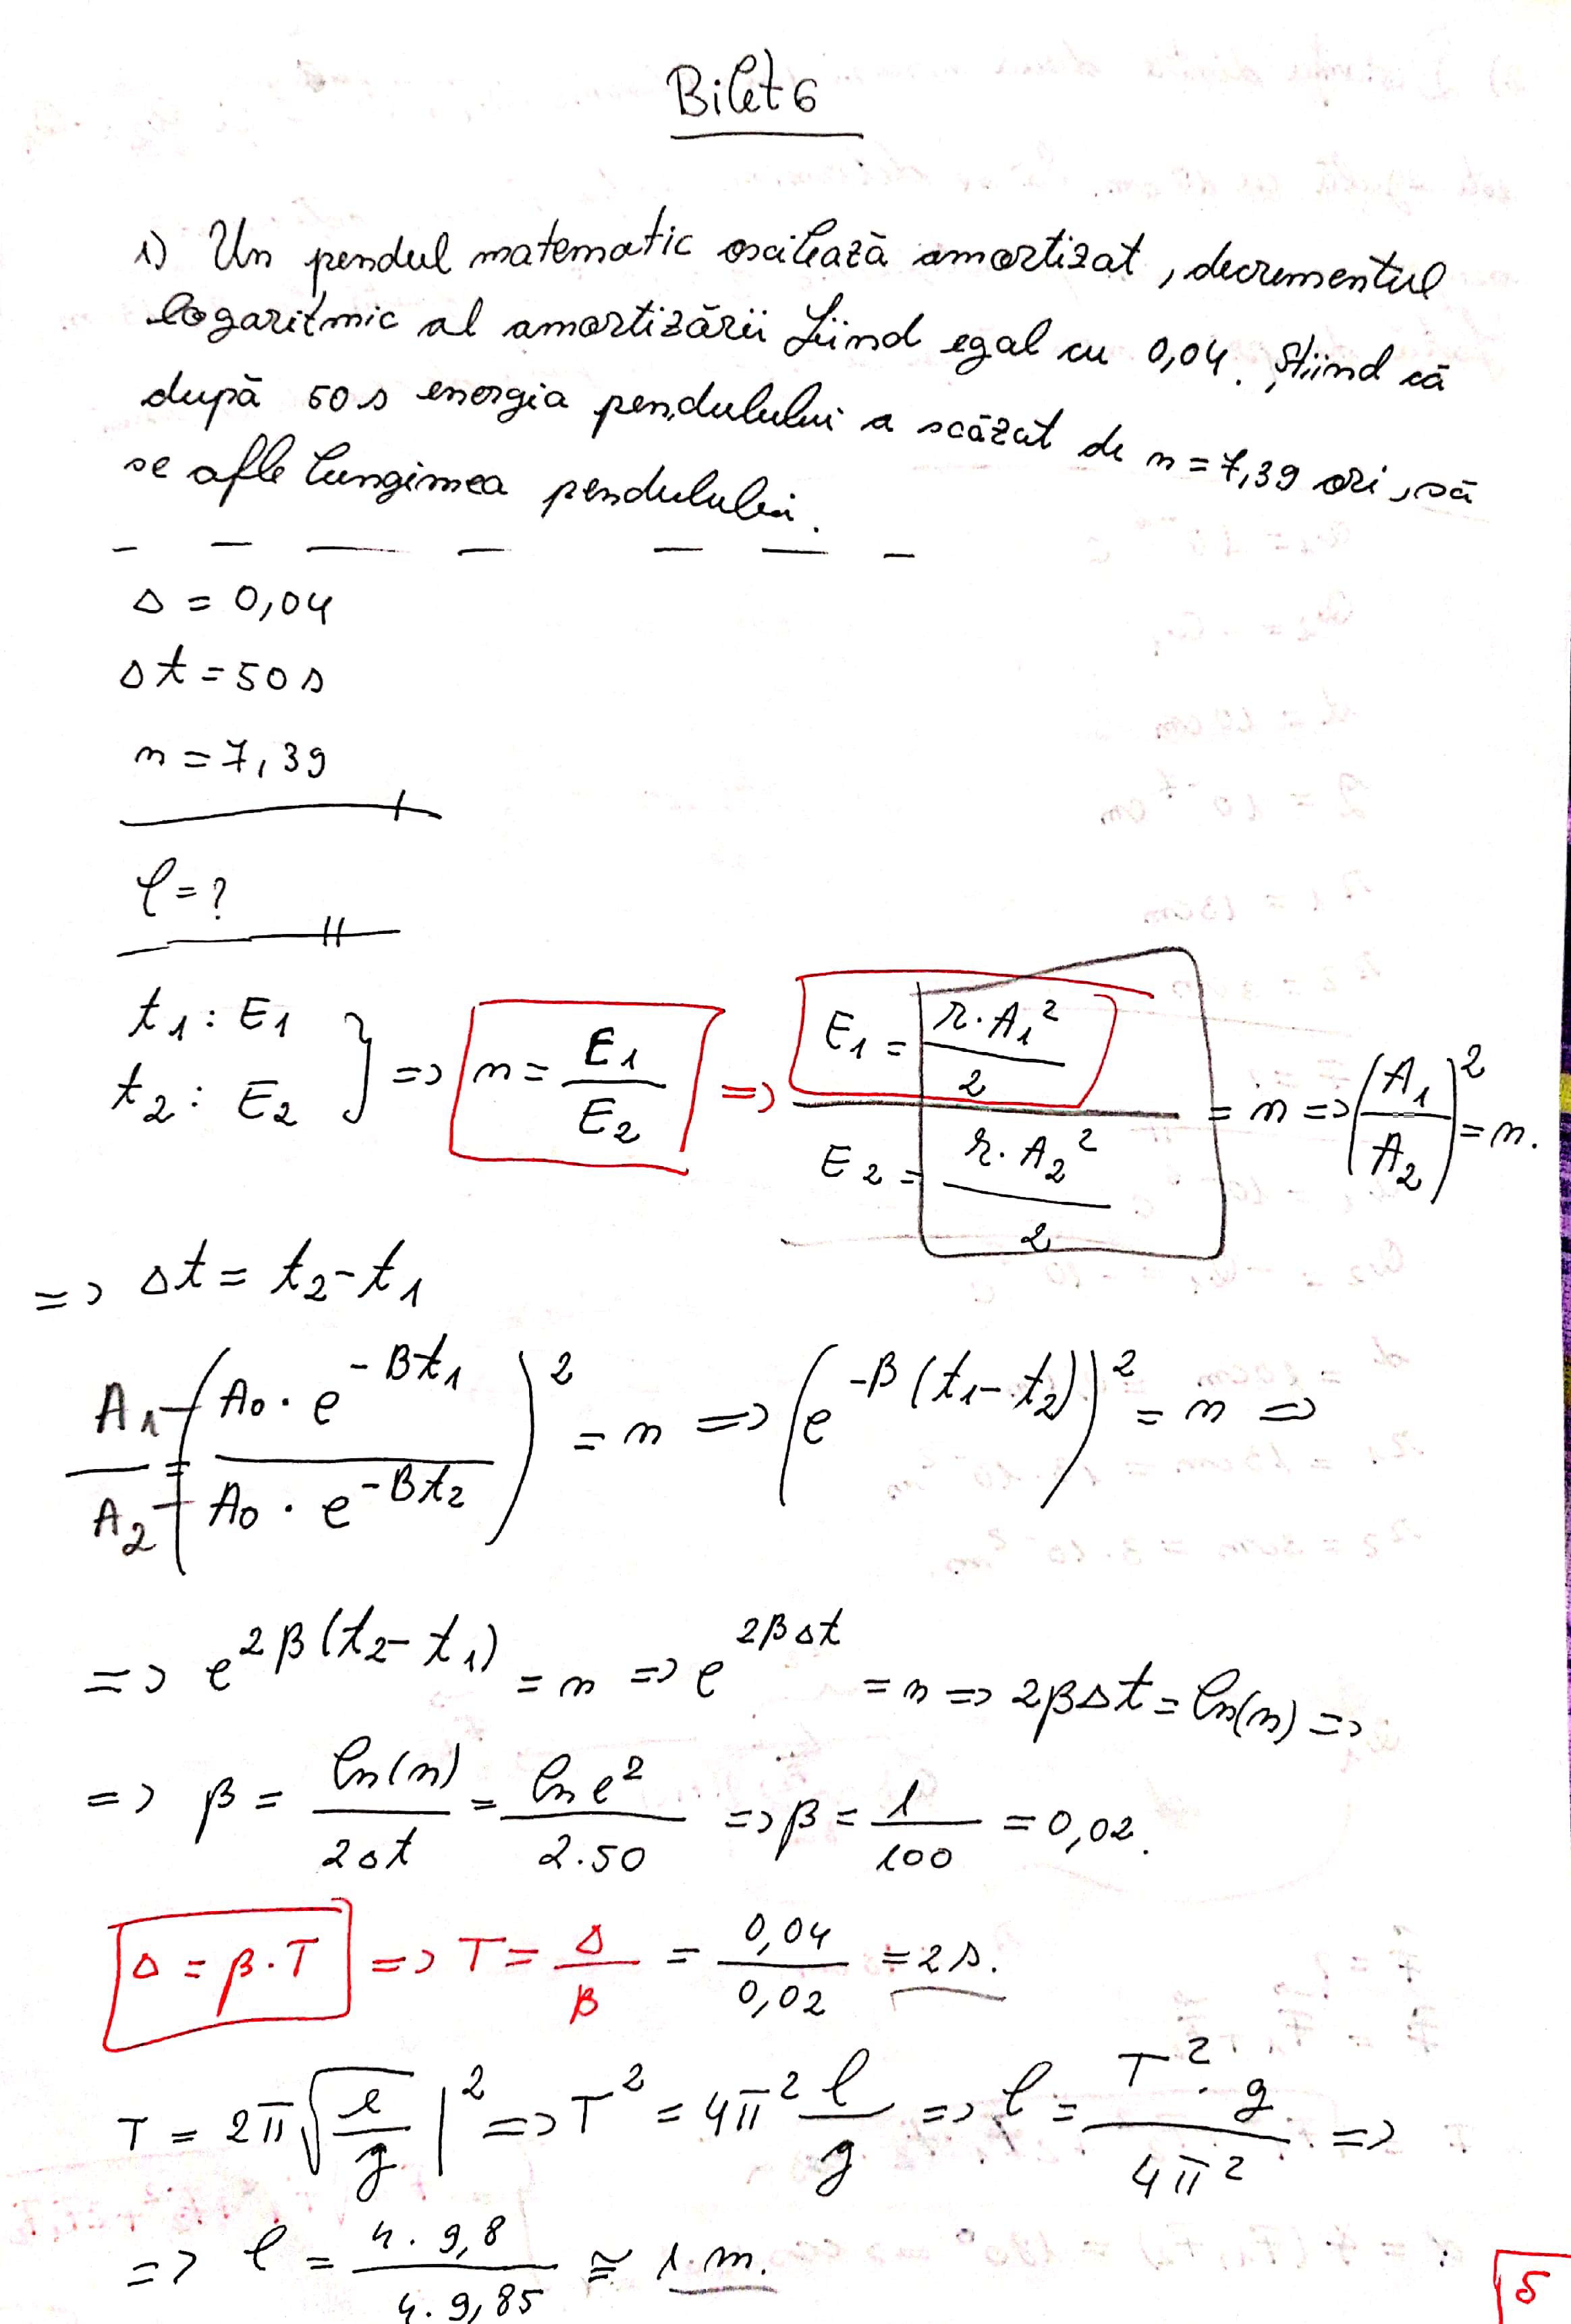 Bilet 6
1) Un pendul matematic oscilează amortizat, decrementul
logaritmic al amortizării fiind egal cu 0,04. Știind că
după 50 s energia pendulului a scăzut de n = 7,39 ori, să
se afle lungimea pendulului.
Δ = 0,04
Δt = 50 s
n = 7,39
l = ?
t1 : E1
t2 : E2 } => n = E1/E2 => (E1 = k·A1²/2)/(E2 = k·A2²/2) = n => (A1/A2)² = n.
=> Δt = t2 - t1
A1/A2 = (A0 · e^(-βt1) / A0 · e^(-βt2))² = n => (e^(-β(t1 - t2)))² = n =>
=> e^(2β(t2 - t1)) = n => e^(2βΔt) = n => 2βΔt = ln(n) =>
=> β = ln(n)/2Δt = ln e²/2·50 => β = 1/100 = 0,02.
Δ = β·T => T = Δ/β = 0,04/0,02 = 2 s.
T = 2π√(l/g) |² => T² = 4π² l/g => l = T²·g/4π² =>
=> l = 4·9,8/4·9,85 ≅ 1 m.
5